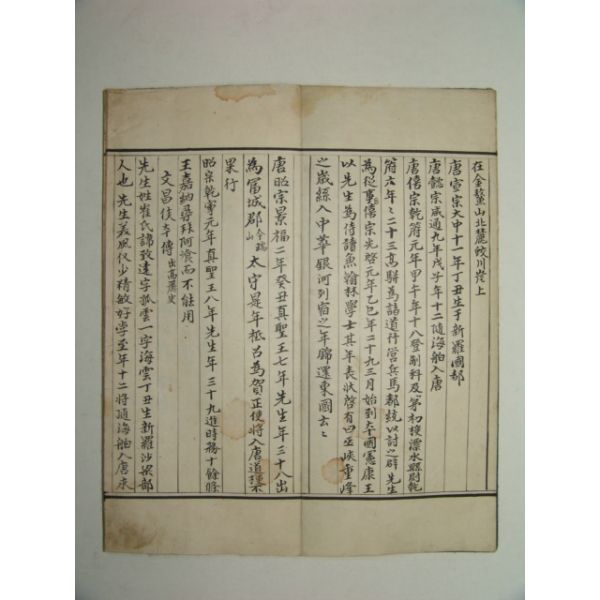 在金鰲山北麓蚊川岸上
唐宣宗大中十一年丁丑生于新羅國都
唐懿宗咸通九年戊子年十二隨海舶入唐
唐僖宗乾符元年甲午年十八登制科及第初授漂水縣尉乾
符六年年二十三高騈爲諸道行營兵馬都統以討之辟先生
爲從事僖宗光啓元年乙巳年二十九三月始到本國憲康王
以先生爲侍讀兼翰林學士其年表狀啓有曰巫峽重峰
之歲絲入中華銀河列宿之年錦還東國云云
唐昭宗景福二年癸丑眞聖王七年先生年三十八出
爲富城郡今瑞山太守是年祗召爲賀正使將入唐道梗不
果行
昭宗乾寧元年眞聖王八年先生年三十九進時務十餘條
王嘉納尋拜阿飡而不能用
文昌侯本傳出高麗史
先生姓崔氏諱致遠字孤雲一字海雲丁丑生新羅沙梁部
人也先生美風仪少精敏好學至年十二將隨海舶入唐求